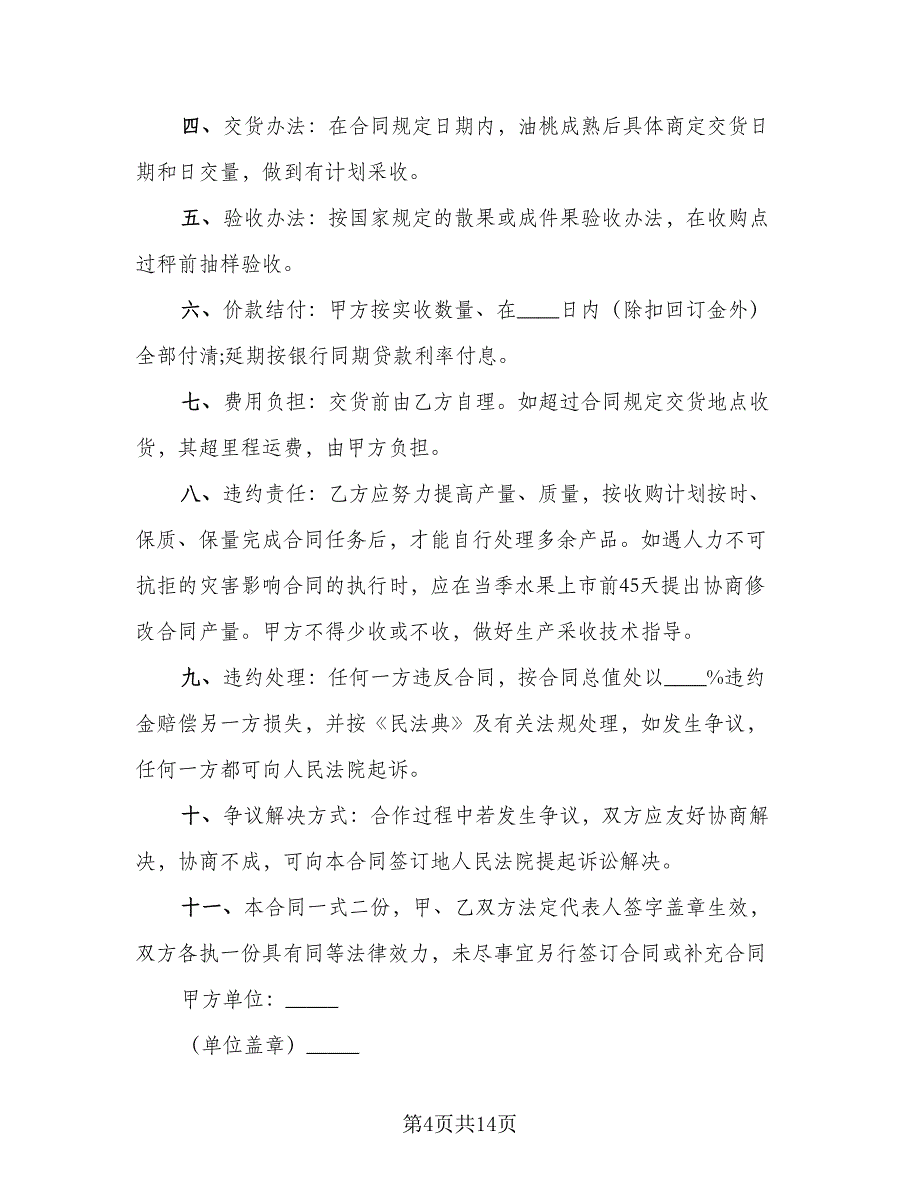 四、交货办法：在合同规定日期内，油桃成熟后具体商定交货日
期和日交量，做到有计划采收。
五、验收办法：按国家规定的散果或成件果验收办法，在收购点
过秤前抽样验收。
六、价款结付：甲方按实收数量、在____日内（除扣回订金外）
全部付清;延期按银行同期贷款利率付息。
七、费用负担：交货前由乙方自理。如超过合同规定交货地点收
货，其超里程运费，由甲方负担。
八、违约责任：乙方应努力提高产量、质量，按收购计划按时、
保质、保量完成合同任务后，才能自行处理多余产品。如遇人力不可
抗拒的灾害影响合同的执行时，应在当季水果上市前45天提出协商修
改合同产量。甲方不得少收或不收，做好生产采收技术指导。
九、违约处理：任何一方违反合同，按合同总值处以____%违约
金赔偿另一方损失，并按《民法典》及有关法规处理，如发生争议，
任何一方都可向人民法院起诉。
十、争议解决方式：合作过程中若发生争议，双方应友好协商解
决，协商不成，可向本合同签订地人民法院提起诉讼解决。
十一、本合同一式二份，甲、乙双方法定代表人签字盖章生效，
双方各执一份具有同等法律效力，未尽事宜另行签订合同或补充合同
甲方单位：_____
（单位盖章）_____
第4页共14页